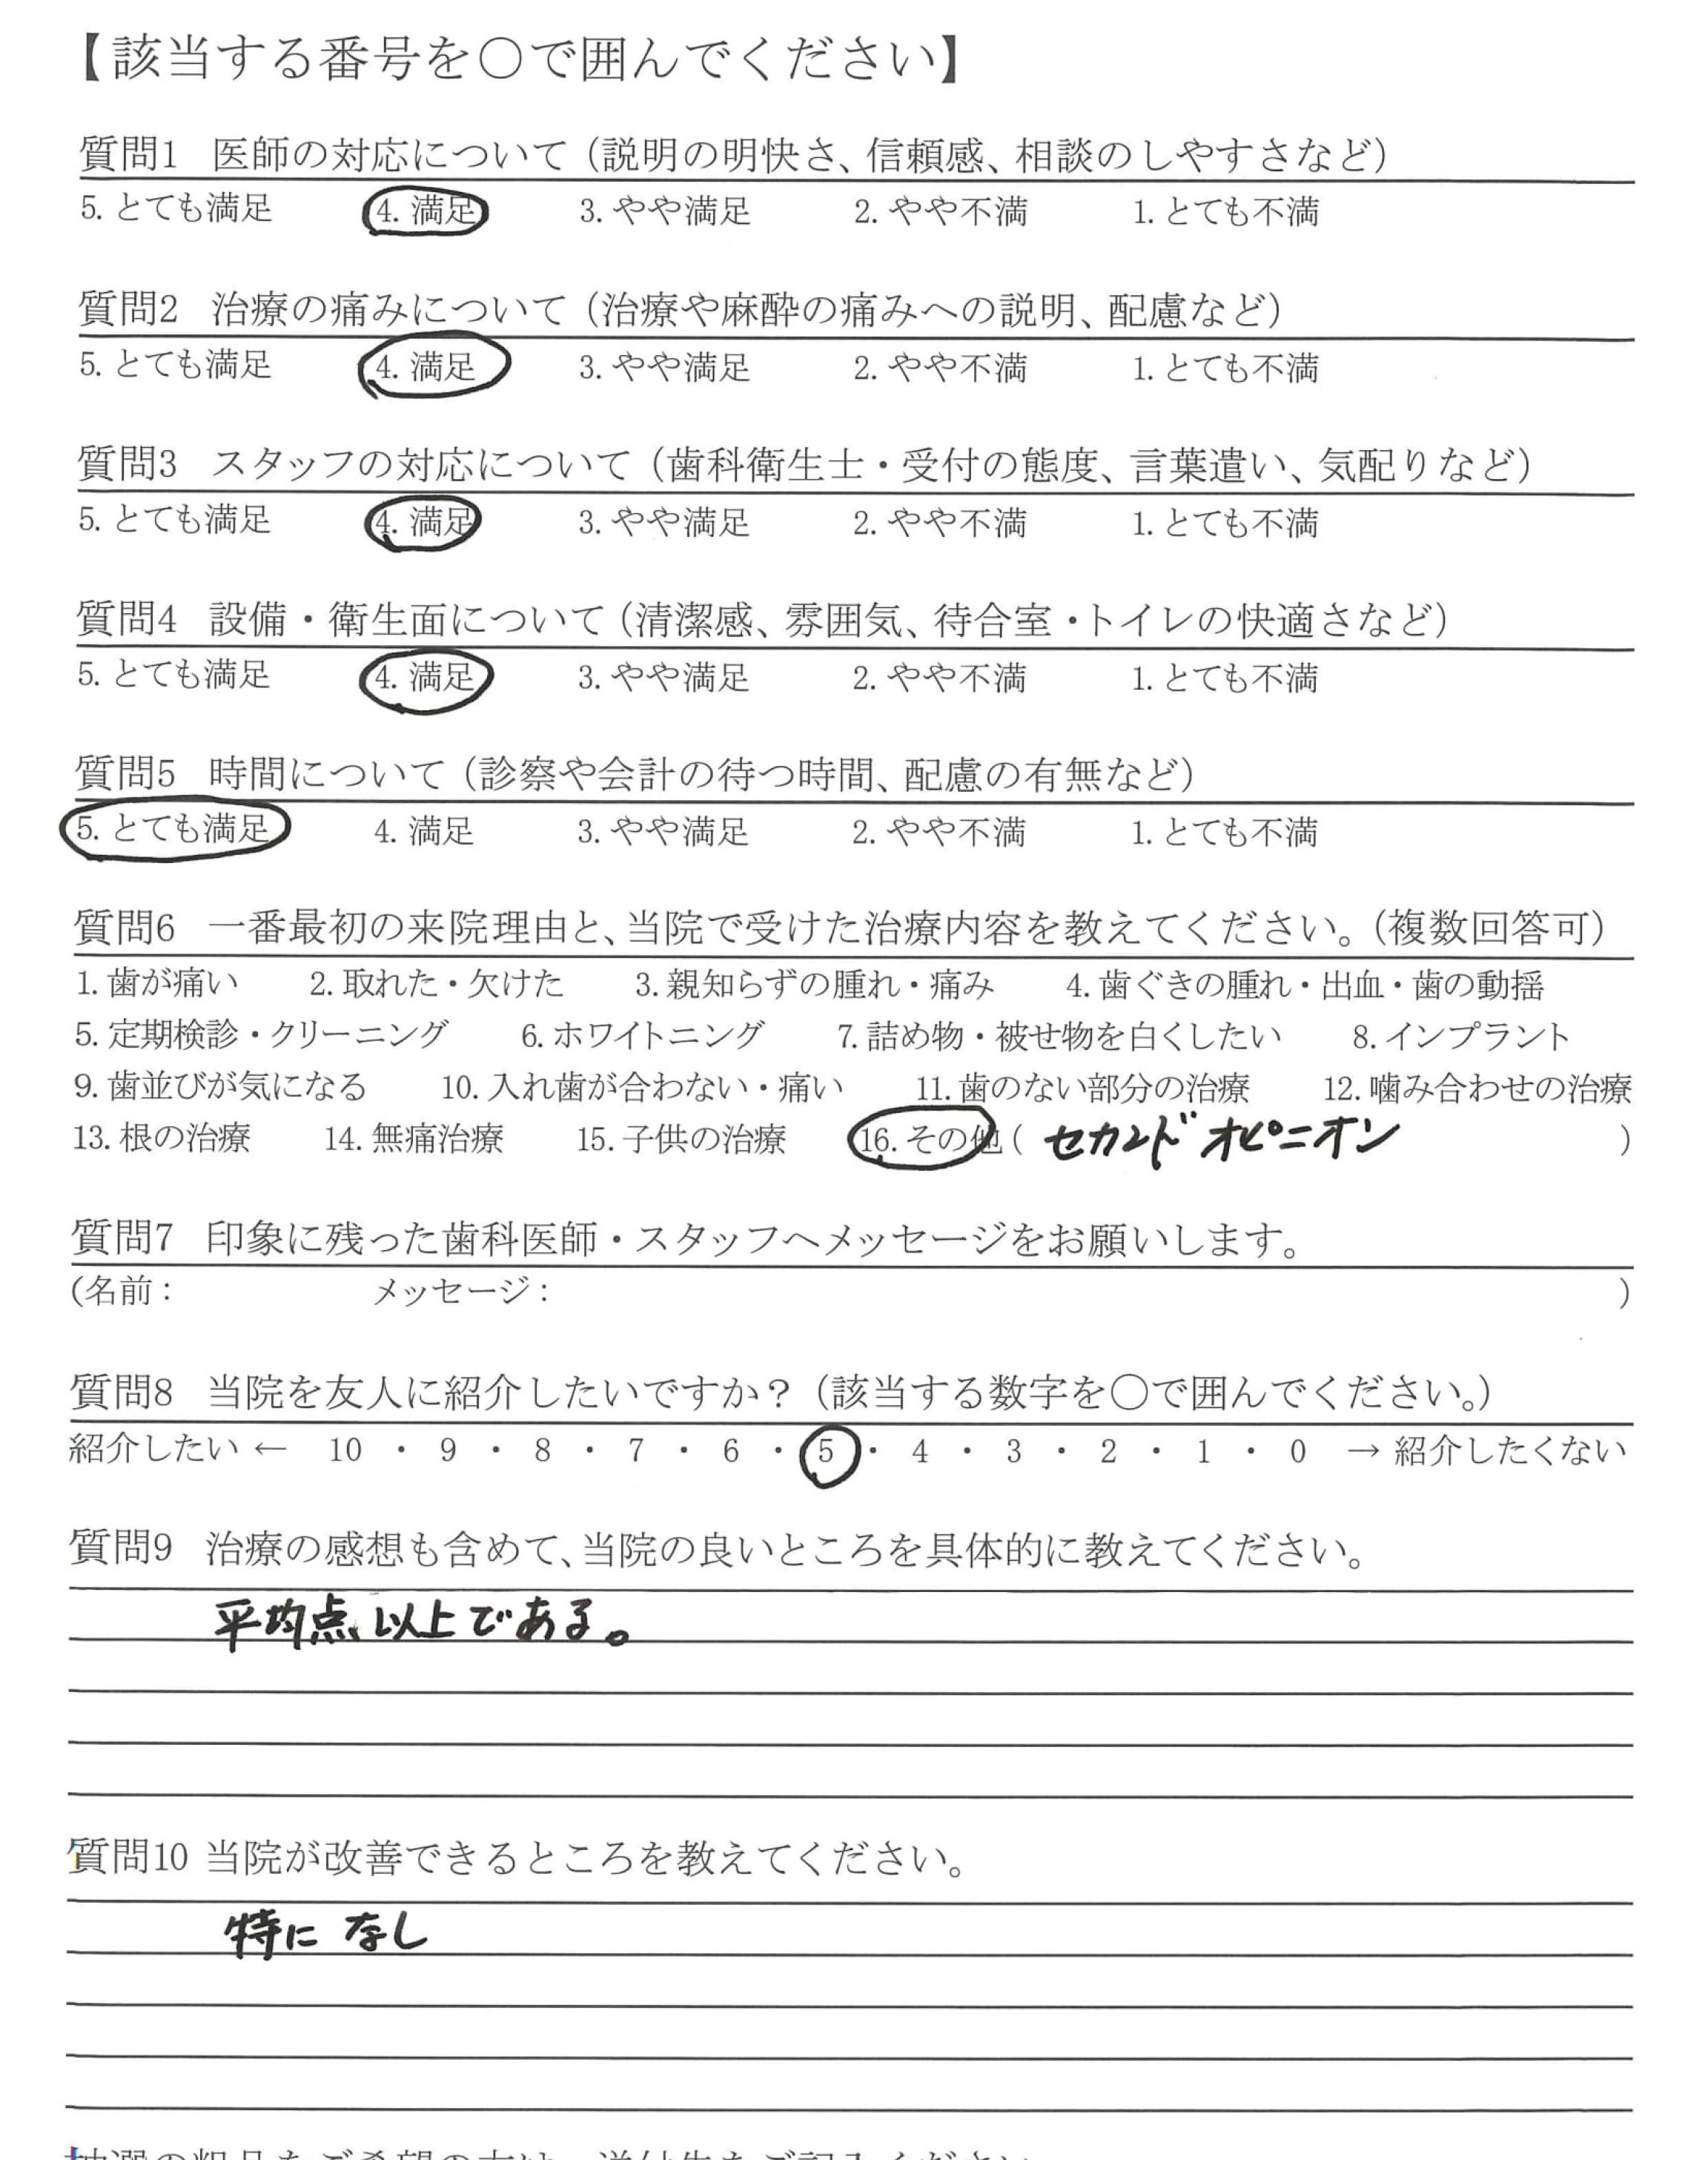 【該当する番号を○で囲んでください】
質問1 医師の対応について（説明の明快さ、信頼感、相談のしやすさなど）
5. とても満足 4. 満足 3. やや満足 2. やや不満 1. とても不満
質問2 治療の痛みについて（治療や麻酔の痛みへの説明、配慮など）
5. とても満足 4. 満足 3. やや満足 2. やや不満 1. とても不満
質問3 スタッフの対応について（歯科衛生士・受付の態度、言葉遣い、気配りなど）
5. とても満足 4. 満足 3. やや満足 2. やや不満 1. とても不満
質問4 設備・衛生面について（清潔感、雰囲気、待合室・トイレの快適さなど）
5. とても満足 4. 満足 3. やや満足 2. やや不満 1. とても不満
質問5 時間について（診察や会計の待つ時間、配慮の有無など）
5. とても満足 4. 満足 3. やや満足 2. やや不満 1. とても不満
質問6 一番最初の来院理由と、当院で受けた治療内容を教えてください。（複数回答可）
1. 歯が痛い 2. 取れた・欠けた 3. 親知らずの腫れ・痛み 4. 歯ぐきの腫れ・出血・歯の動揺
5. 定期検診・クリーニング 6. ホワイトニング 7. 詰め物・被せ物を白くしたい 8. インプラント
9. 歯並びが気になる 10. 入れ歯が合わない・痛い 11. 歯のない部分の治療 12. 噛み合わせの治療
13. 根の治療 14. 無痛治療 15. 子供の治療 16. その他（ セカンドオピニオン ）
質問7 印象に残った歯科医師・スタッフへメッセージをお願いします。
（名前： メッセージ： ）
質問8 当院を友人に紹介したいですか？（該当する数字を○で囲んでください。）
紹介したい ← 10 ・ 9 ・ 8 ・ 7 ・ 6 ・ 5 ・ 4 ・ 3 ・ 2 ・ 1 ・ 0 → 紹介したくない
質問9 治療の感想も含めて、当院の良いところを具体的に教えてください。
平均点以上である。
質問10 当院が改善できるところを教えてください。
特になし